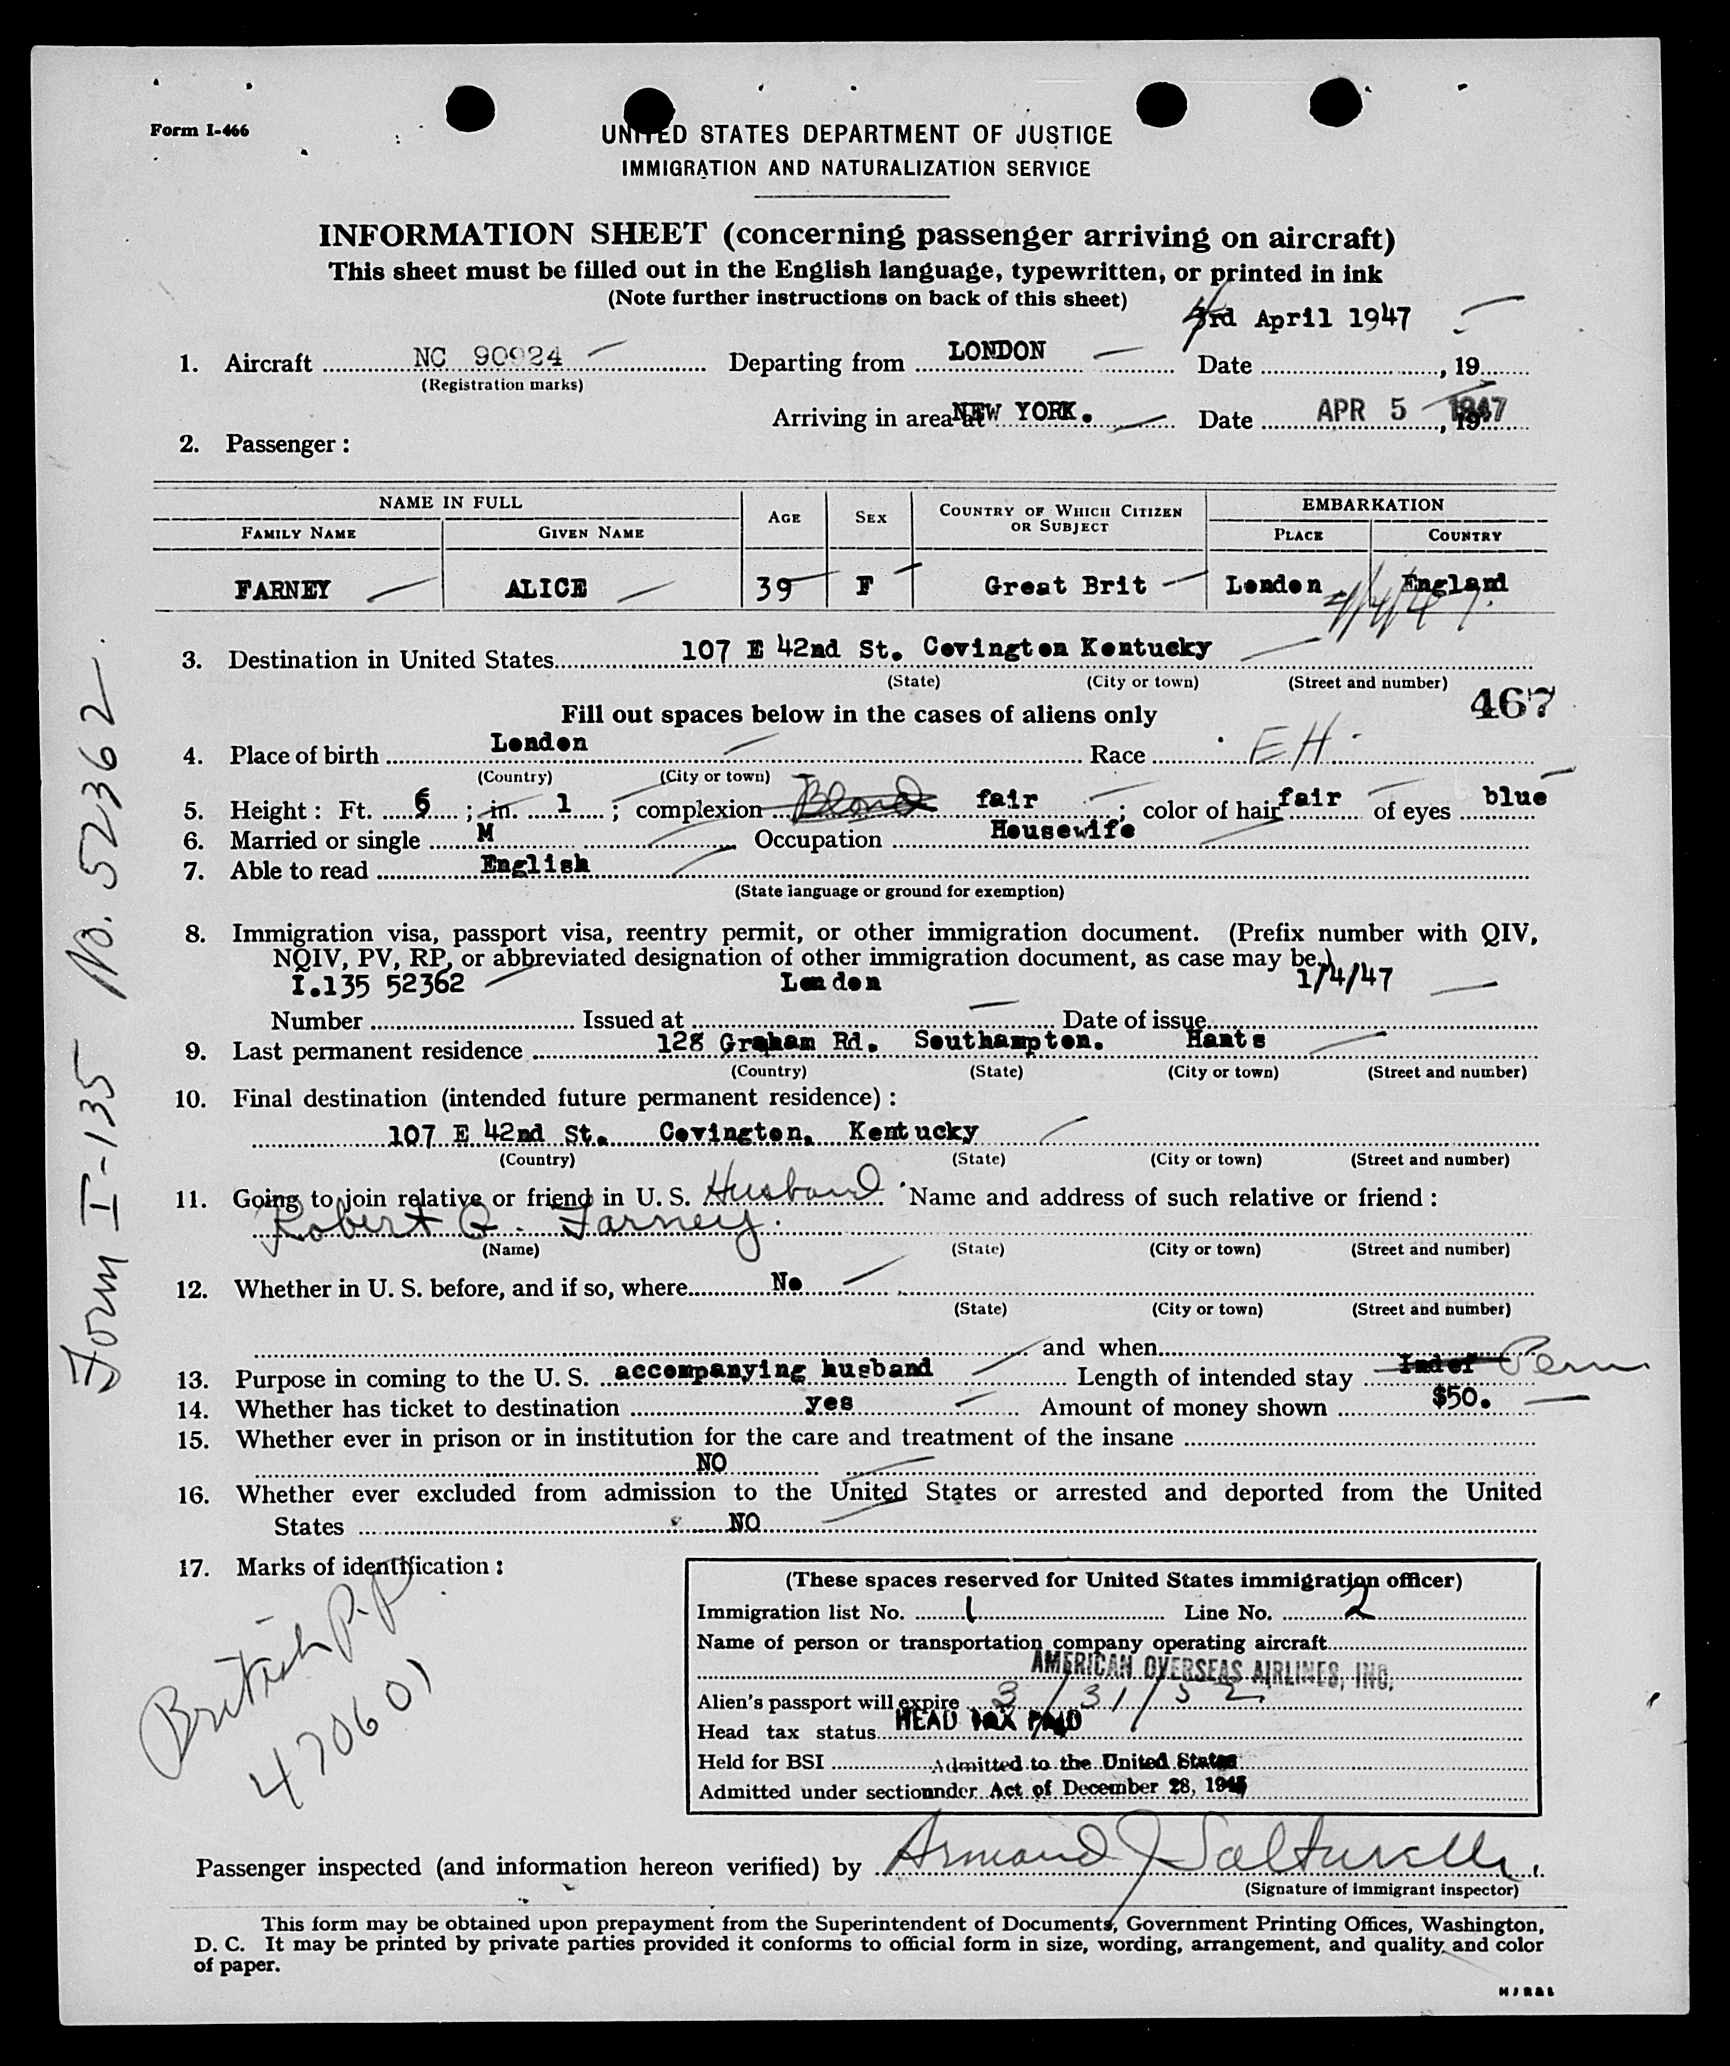 Form I-466
UNITED STATES DEPARTMENT OF JUSTICE
IMMIGRATION AND NATURALIZATION SERVICE
INFORMATION SHEET (concerning passenger arriving on aircraft)
This sheet must be filled out in the English language, typewritten, or printed in ink
(Note further instructions on back of this sheet)
3rd April 1947
1. Aircraft NC 90924 Departing from LONDON Date , 19
(Registration marks)
Arriving in area at NEW YORK. Date APR 5 1947, 19
2. Passenger :
NAME IN FULL AGE SEX COUNTRY OF WHICH CITIZEN OR SUBJECT EMBARKATION
FAMILY NAME GIVEN NAME PLACE COUNTRY
FARNEY ALICE 39 F Great Brit London England
4/4/47.
3. Destination in United States 107 E 42nd St. Covington Kentucky
(State) (City or town) (Street and number)
467
Fill out spaces below in the cases of aliens only
4. Place of birth London Race EH
(Country) (City or town)
5. Height : Ft. 5 ; in. 1 ; complexion Blond fair ; color of hair fair of eyes blue
6. Married or single M Occupation Housewife
7. Able to read English
(State language or ground for exemption)
8. Immigration visa, passport visa, reentry permit, or other immigration document. (Prefix number with QIV,
NQIV, PV, RP, or abbreviated designation of other immigration document, as case may be.)
I.135 52362 London 1/4/47
Number Issued at Date of issue
9. Last permanent residence 128 Graham Rd. Southampton. Hants
(Country) (State) (City or town) (Street and number)
10. Final destination (intended future permanent residence) :
107 E 42nd St. Covington, Kentucky
(Country) (State) (City or town) (Street and number)
11. Going to join relative or friend in U. S. Husband Name and address of such relative or friend :
Robert G. Farney.
(Name) (State) (City or town) (Street and number)
12. Whether in U. S. before, and if so, where No
(State) (City or town) (Street and number)
and when
13. Purpose in coming to the U. S. accompanying husband Length of intended stay Indef Perm
14. Whether has ticket to destination yes Amount of money shown $50.
15. Whether ever in prison or in institution for the care and treatment of the insane
NO
16. Whether ever excluded from admission to the United States or arrested and deported from the United
States NO
17. Marks of identification :
British P.P.
470601
(These spaces reserved for United States immigration officer)
Immigration list No. 1 Line No. 2
Name of person or transportation company operating aircraft
AMERICAN OVERSEAS AIRLINES, INC.
Alien's passport will expire 3/31/52
Head tax status HEAD TAX PAID
Held for BSI Admitted to the United States
Admitted under section under Act of December 28, 1945
Passenger inspected (and information hereon verified) by Armand J Salturelli
(Signature of immigrant inspector)
This form may be obtained upon prepayment from the Superintendent of Documents, Government Printing Offices, Washington,
D. C. It may be printed by private parties provided it conforms to official form in size, wording, arrangement, and quality and color
of paper.
Form I-135 No. 52362